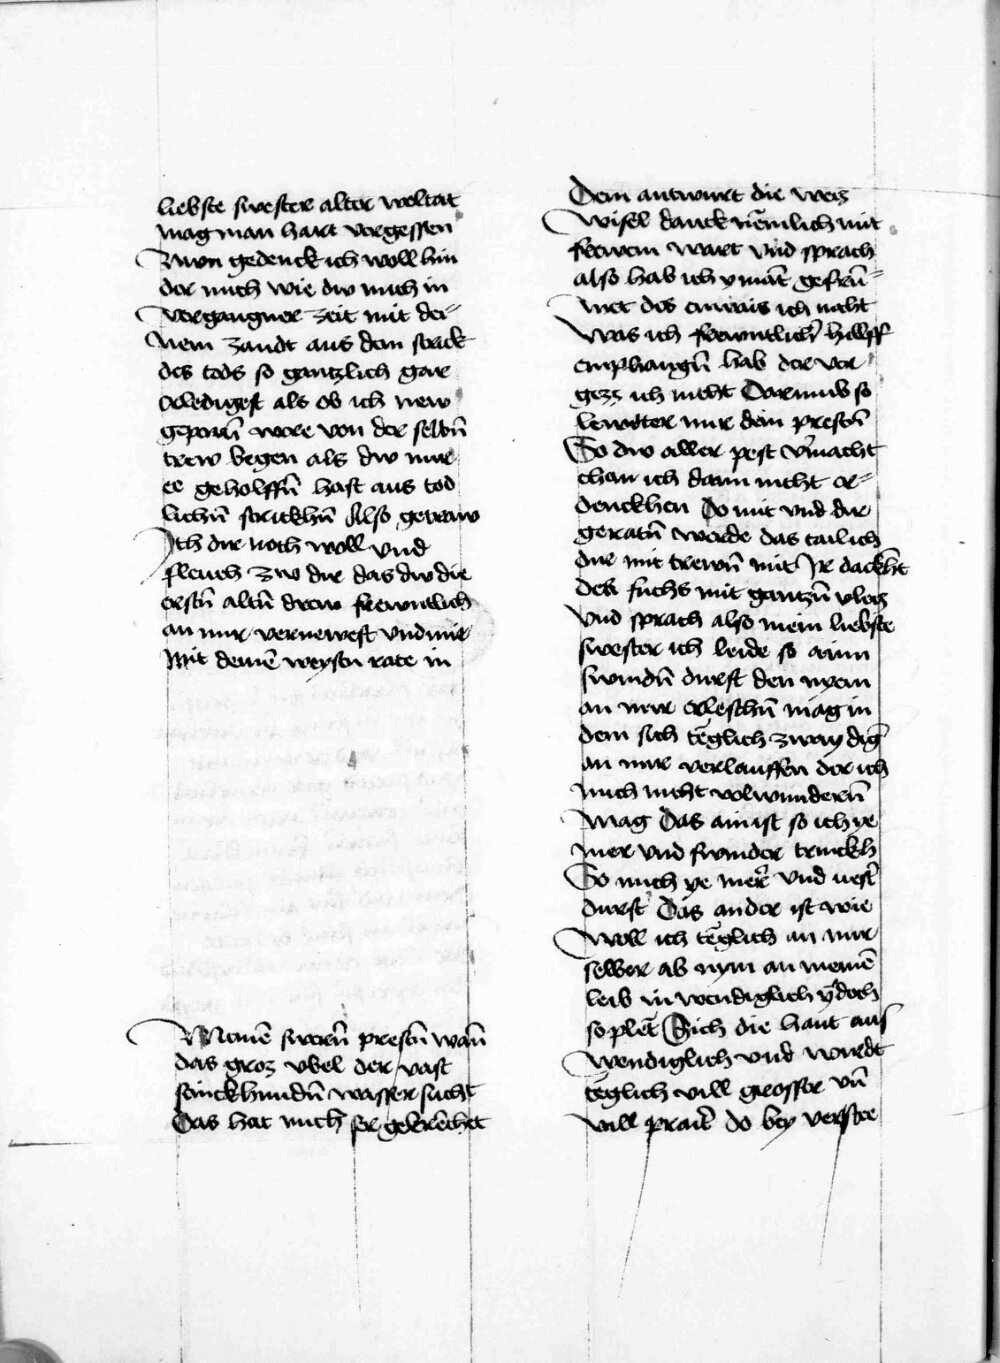 liebste swester alter woltat
mag man hart vergessen
Nwn gedenck ich woll hin
der mich wie dw mich in
vergangner zeit mit dei-
nem zandt aus dem strick
des tods so gantzlich gar
erledigest als ob ich new
geporn̄ were von der selbn̄
trew wegen als dw mir
ee geholffn̄ hast aus tod
lichn̄ strickhn̄ Also getraw
Ich dir noch woll vnd
fleuch zw dir das dw die
erstn̄ altn̄ drew frewntlich
an mir vernewest vnd mir
Mit deinē weystn rate in
Meinē swern̄ prestn̄ wan̄
das groz vbel der vast
stinckhundn̄ wasser sucht
Das hat mich ser geswechet
Dem antwurt die weis
wisel danck nēmlich mit
frewem wart vnd sprach
also hab ich ymāt gefrū-
met des enwais ich nicht
Was ich frewntlicher hillff
emphangn̄ hab der ver
gezz ich nicht Darumb so
lewtter mir dein prestn̄
So dw aller pest vmacht
chan ich dann nicht er-
denckhen Do mit vnd dir
geratn̄ werde das tail ich
dir mit trewn̄ mit Ir dackht
des fuchs mit gantzn̄ vleis
vnd sprach also mein liebste
swester ich leide so ainn
swindn̄ durst den nyem
an mir erleschn̄ mag in
dem sich tēglich zway dīg
an mir verlauffen der ich
mich nicht volwundern̄
mag Das ain ist so ich ye
mer vnd swinder trinckh
So mich ye mer vnd vest
durst Das ander ist wie
woll ich tēglich an mir
selber ab nym an meinē
leib in wendiglich ydoch
so plet Sich die haut aus
wendiglich vnd wirdt
tēglich vill grosser vn̄
vill prait do bey verstee